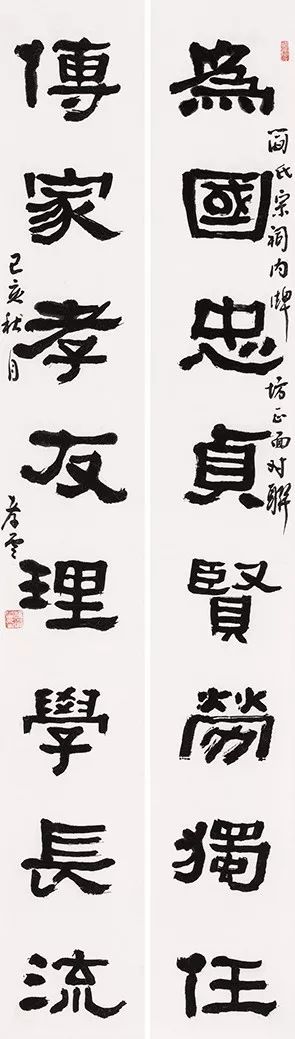 為國忠貞賢勞獨任
阎氏宗祠内牌坊正面对聯
傳家孝友理學長流
己亥秋月